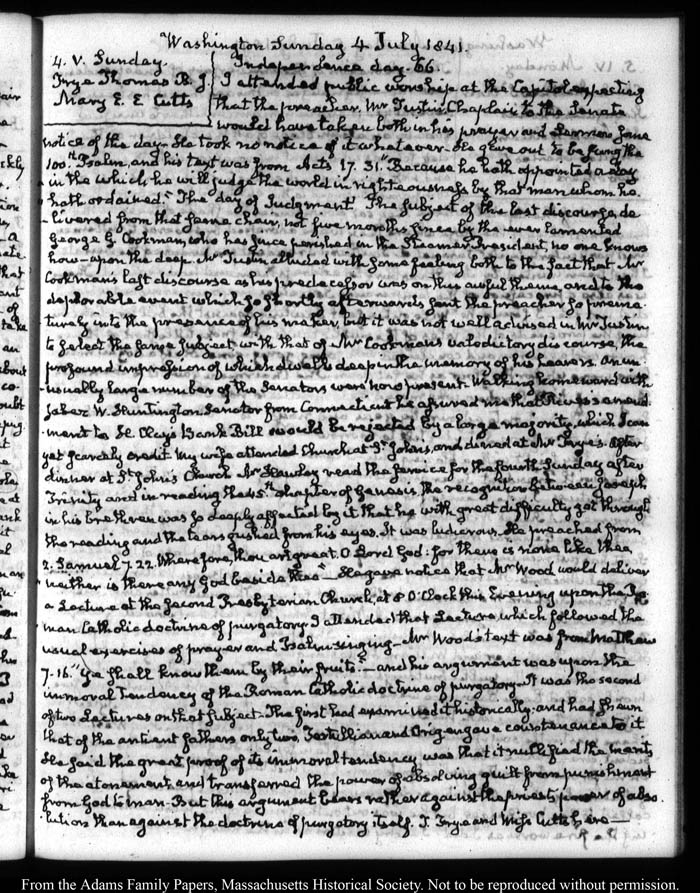 Washington Sunday 4 July 1841.
4. V. Sunday.
Independence day. 66
Frye Thomas B. J.
Mary E. E Cutts
I attended public worship at the Capitol expecting
that the preacher, Mr Tustin, Chaplain to the Senate
would have taken both in his prayer and Sermon some
notice of the day. He took no notice of it whatever. He gave out to be sung the
100th Psalm, and his text was from Acts 17. 31 "Because he hath appointed a day
in the which he will judge the world in righteousness by that man whom he
hath ordained." The day of Judgment. The subject of the last discourse, de
livered from that same chair, not five months since by the ever lamented
George G. Cookman, who has since perished in the Steamer President, no one knows
how—upon the deep. Mr Tustin alluded with some feeling both to the fact that Mr
Cookman's last discourse as his predecessor was on this awful theme, and to the
deplorable event which so shortly afterwards sent the preacher so prema
turely into the presence of his maker, but it was not well advised in Mr Tustin
to select the same subject with that of Mr Cookman's valedictory discourse, the
profound impression of which dwells deep in the memory of his hearers. An un
usually large number of the Senators were now present. Walking homeward with
Jabez W. Huntington, Senator from Connecticut he assured me that Rives's amend
ment to H. Clay's Bank Bill would be rejected by a large majority, which I can
yet scarcely credit. My wife attended Church at St John's, and dined at Mr Frye's. After
dinner at St John's Church Mr Hawley read the service for the fourth Sunday after
Trinity and in reading the 45th chapter of Genesis, the recognition between Joseph
in his brethren was so deeply affected by it that he with great difficulty got through
the reading and the tears gushed from his eyes. It was ludicrous. He preached from
2. Samuel 7. 22. Wherefore, thou art great, O Lord God: for there is none like thee
neither is there any God beside thee"— He gave notice that Mr Wood would deliver
a Lecture at the Second Presbyterian Church, at 8 O'Clock this Evening upon the Ro
man Catholic doctrine of purgatory. I attended that Lecture which followed the
usual exercises of prayer and Psalm singing— Mr Wood's text was from Matthew
7. 16. "Ye shall know them by their fruits."— and his argument was upon the
immoral tendency of the Roman Catholic doctrine of purgatory— It was the second
of two Lectures on that subject— The first had examined it historically; and had shewn
that of the antient fathers only two, Tertullian and Origen gave countenance to it
He said the great proof of its immoral tendency was that it nullified the merits
of the atonement, and transferred the power of absolving guilt from punishment
from God to man. But this argument bears rather against the priests power of abso
lution than against the doctrine of purgatory itself. T. Frye and Miss Cutts here—
From the Adams Family Papers, Massachusetts Historical Society. Not to be reproduced without permission.